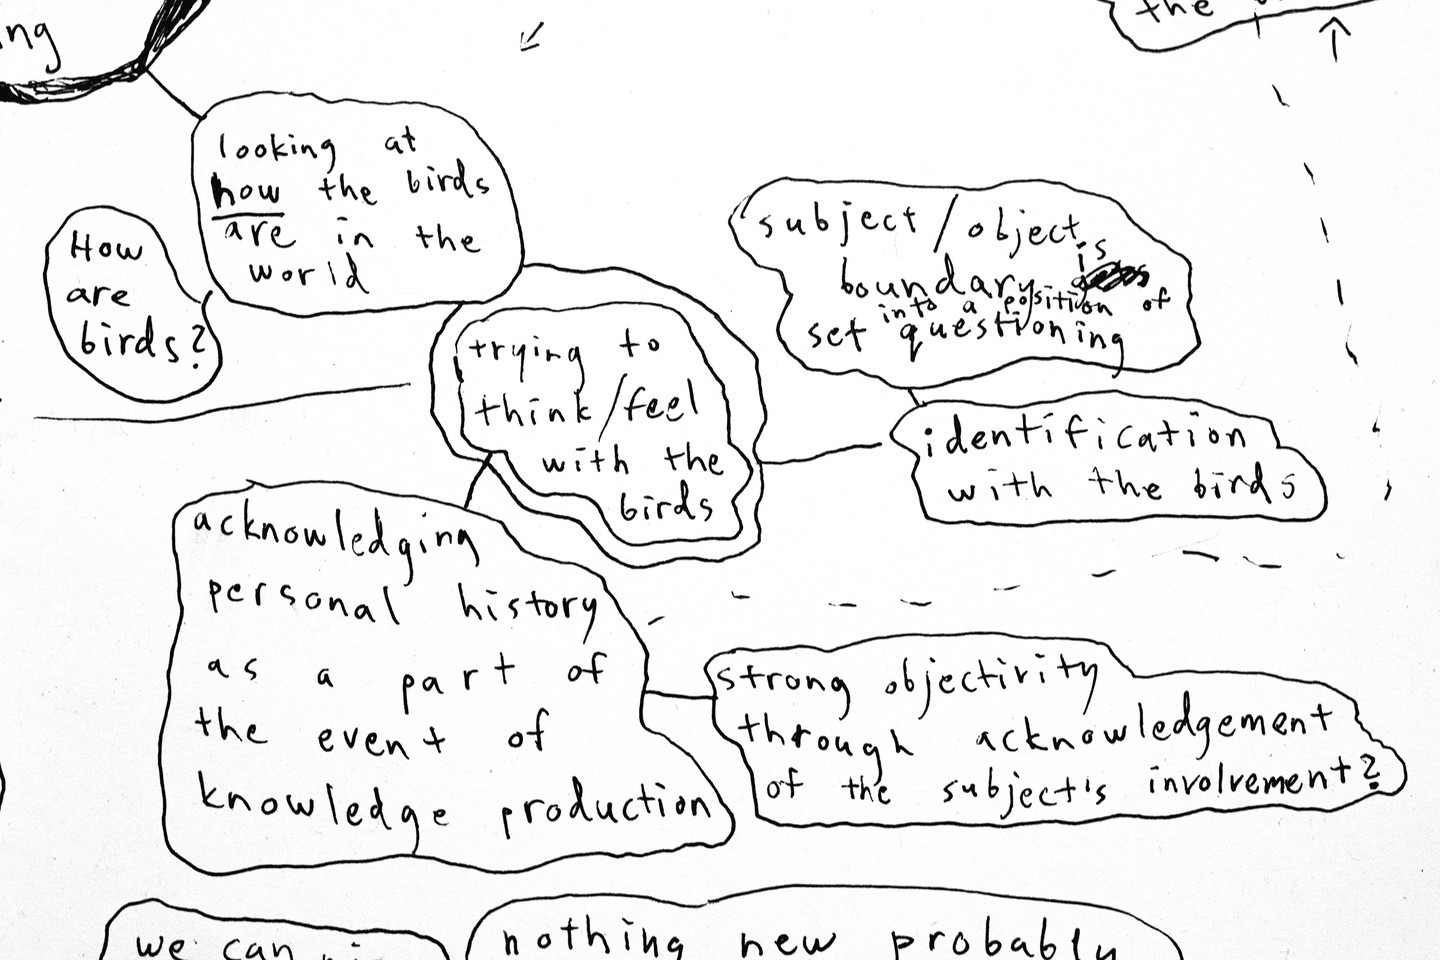 ing
the
looking at
how the birds
are in the
world
How
are
birds?
subject / object
boundary is
set into a position of
questioning
trying to
think/feel
with the
birds
identification
with the birds
acknowledging
personal history
as a part of
the event of
knowledge production
strong objectivity
through acknowledgement
of the subject's involvement?
we can
nothing new probably